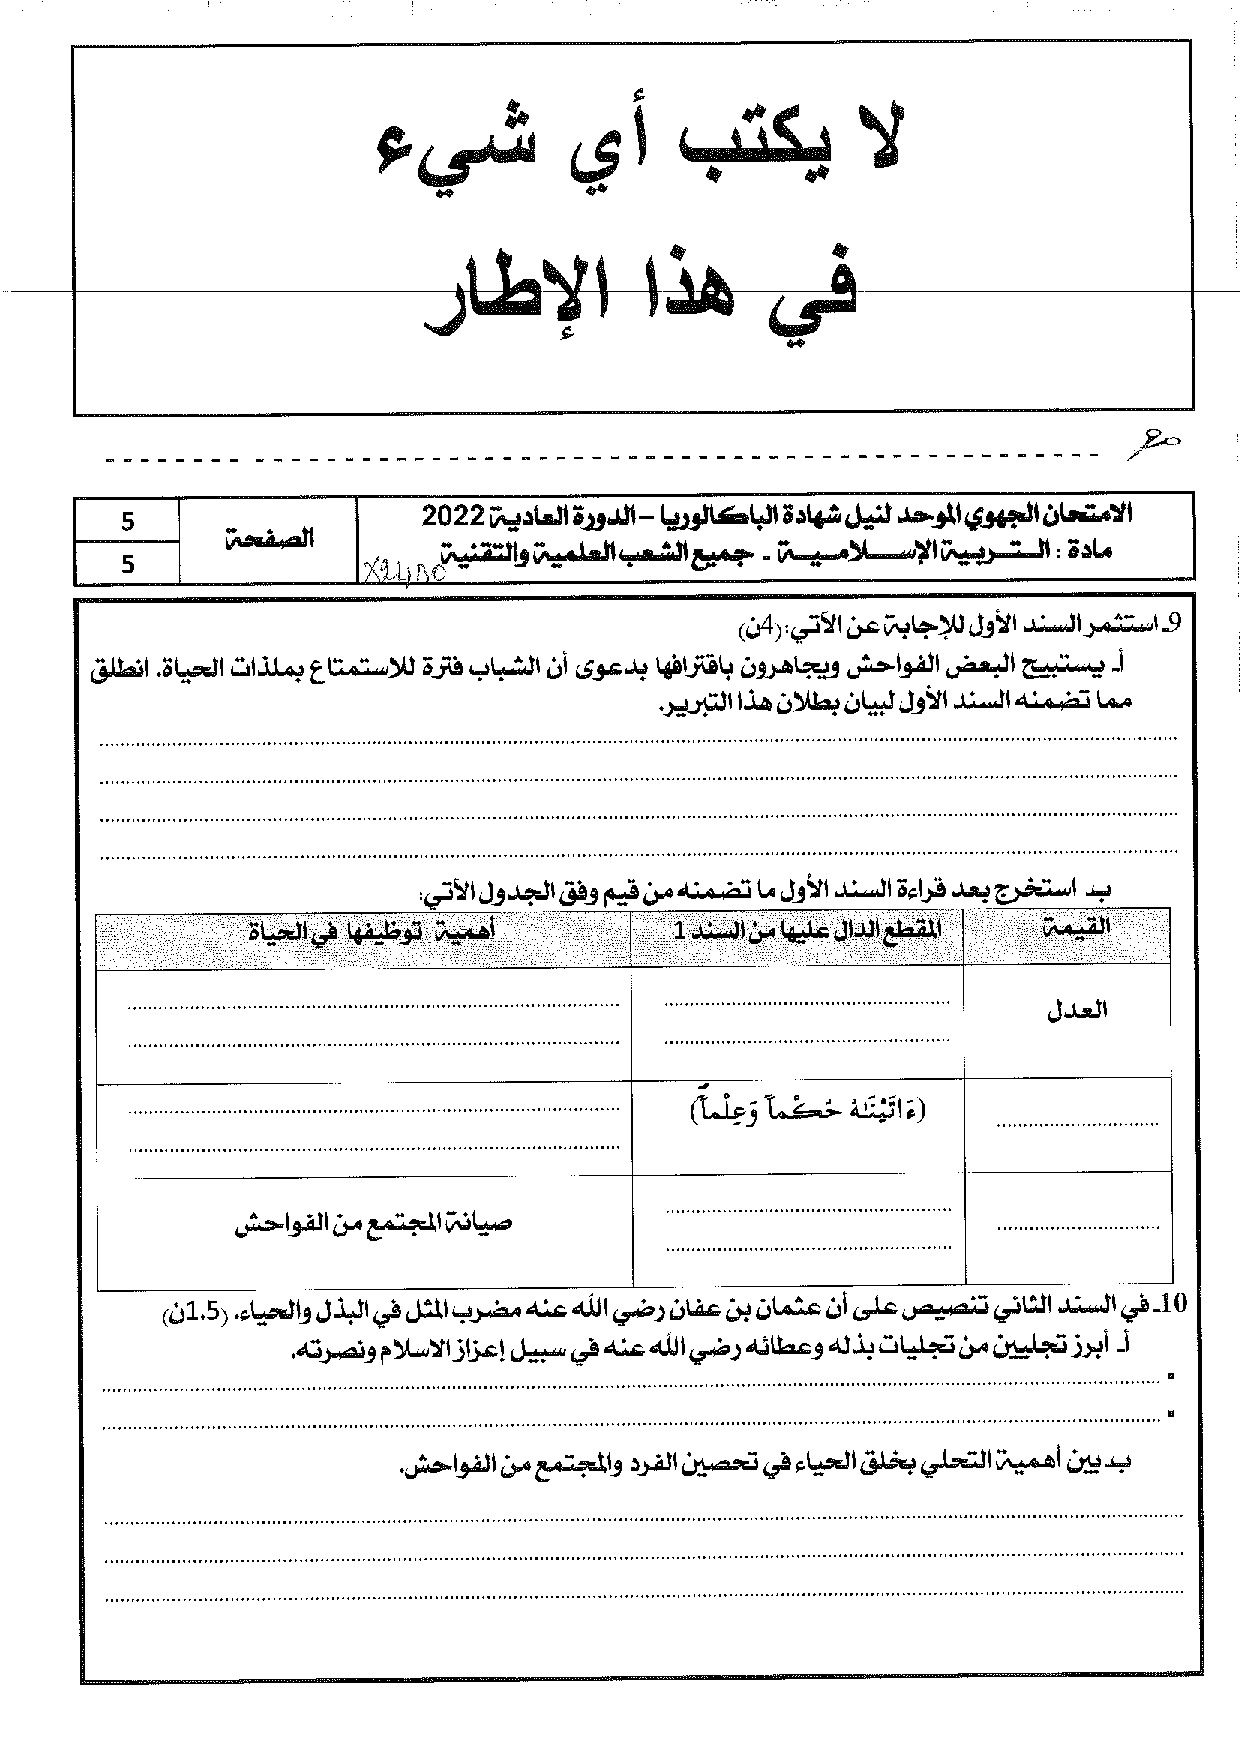 لا يكتب أي شيء
في هذا الإطار
الامتحان الجهوي الموحد لنيل شهادة الباكالوريا – الدورة العادية 2022
مادة : التربية الإسلامية - جميع الشعب العلمية والتقنية
الصفحة
5
5
9ـ استثمر السند الأول للإجابة عن الآتي:(4ن)
أـ يستبيح البعض الفواحش ويجاهرون باقترافها بدعوى أن الشباب فترة للاستمتاع بملذات الحياة. انطلق
مما تضمنه السند الأول لبيان بطلان هذا التبرير.
بـ استخرج بعد قراءة السند الأول ما تضمنه من قيم وفق الجدول الآتي:
القيمة المقطع الدال عليها من السند 1 أهمية توظيفها في الحياة
العدل
(ءَاتَيْنَٰهُ حُكْماٗ وَعِلْماٗۖ)
صيانة المجتمع من الفواحش
10ـ في السند الثاني تنصيص على أن عثمان بن عفان رضي الله عنه مضرب المثل في البذل والحياء. (1.5ن)
أـ أبرز تجليين من تجليات بذله وعطائه رضي الله عنه في سبيل إعزاز الاسلام ونصرته.
بـ بين أهمية التحلي بخلق الحياء في تحصين الفرد والمجتمع من الفواحش.